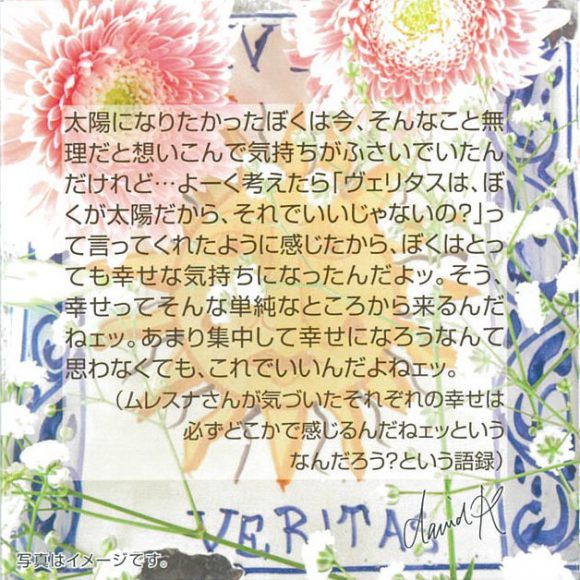 太陽になりたかったぼくは今、そんなこと無
理だと想いこんで気持ちがふさいでいたん
だけれど…よーく考えたら「ヴェリタスは、ぼ
くが太陽だから、それでいいじゃないの?」っ
て言ってくれたように感じたから、ぼくはとっ
ても幸せな気持ちになったんだよッ。そう、
幸せってそんな単純なところから来るんだ
ねェッ。あまり集中して幸せになろうなんて
思わなくても、これでいいんだよねェッ。
(ムレスナさんが気づいたそれぞれの幸せは
必ずどこかで感じるんだねェッという
なんだろう?という語録)
VERITA
david K
写真はイメージです。